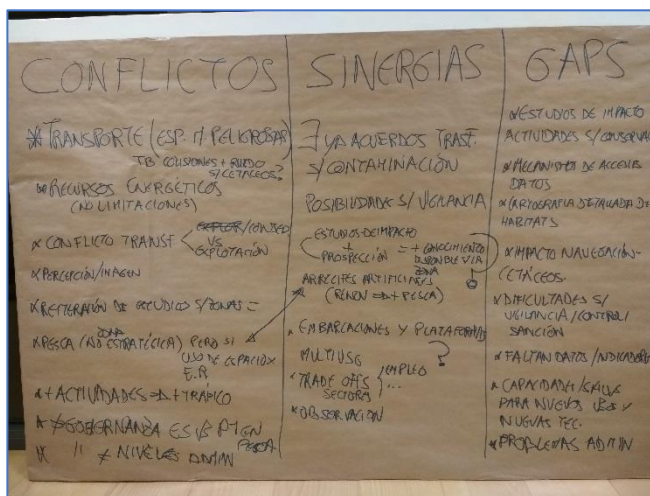 CONFLICTOS
* TRANSPORTE (ESP. M PELIGROSAS)
TB COLISIONES + RUIDO
S/CETÁCEOS?
* RECURSOS ENERGÉTICOS
(NO LIMITACIONES)
* CONFLICTO TRANSF
VS
EXPLOTACIÓN
* PERCEPCIÓN/IMAGEN
* REITERACIÓN DE ESTUDIOS S/ZONAS =
* PESCA (NO ZONA ESTRATÉGICA) PERO SI
USO DE ESPACIO X
E.R
* + ACTIVIDADES => + TRÁFICO
* ≠ GOBERNANZA ES VS PT EN
PESCA
* " ≠ NIVELES ADMIN
SINERGIAS
∃ YA ACUERDOS TRASF.
S/CONTAMINACIÓN
POSIBILIDADES S/ VIGILANCIA
ESTUDIOS DE IMPACTO
+
PROSPECCIÓN
= + CONOCIMIENTO
DISPONIBLE
ZONA
ARRECIFES ARTIFICIALES
(RENOV => + PESCA)
* EMBARCACIONES Y PLATAFORMAS
MULTIUSO
?
* TRADE OFFS
SECTORES
EMPLEO
...
* OBSERVACIÓN
GAPS
* ESTUDIOS DE IMPACTO
ACTIVIDADES S/CONSERVA
* MECANISMOS DE ACCESO
DATOS
* CARTOGRAFIA DETALLADA DE
HABITATS
* IMPACTO NAVEGACIÓN-
CETÁCEOS.
* DIFICULTADES S/
VIGILANCIA/CONTROL/
SANCIÓN
* FALTAN DATOS/INDICADORE
* CAPACIDADES/SKILLS
PARA NUEVOS USOS Y
NUEVAS TEC.
* PROBLEMAS ADMIN